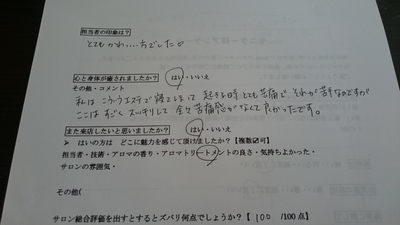 担当者の印象は？
とてもかわ...ちでした。
心と身体が癒されましたか？ はい・いいえ
その他・コメント
私はこういうエステで寝てしまって起きる時とても苦痛で、それが苦手なのですが
ここはすごくスッキリして全々苦痛感がなくて良かったです。
また来店したいと思いましたか？ はい・いいえ
➢ はいの方は どこに魅力を感じて頂けましたか？【複数☑可】
担当者・技術・アロマの香り・アロマトリートメントの良さ・気持ちよかった・
サロンの雰囲気・
その他（
サロン総合評価を出すとするとズバリ何点でしょうか？【 100 /100 点】